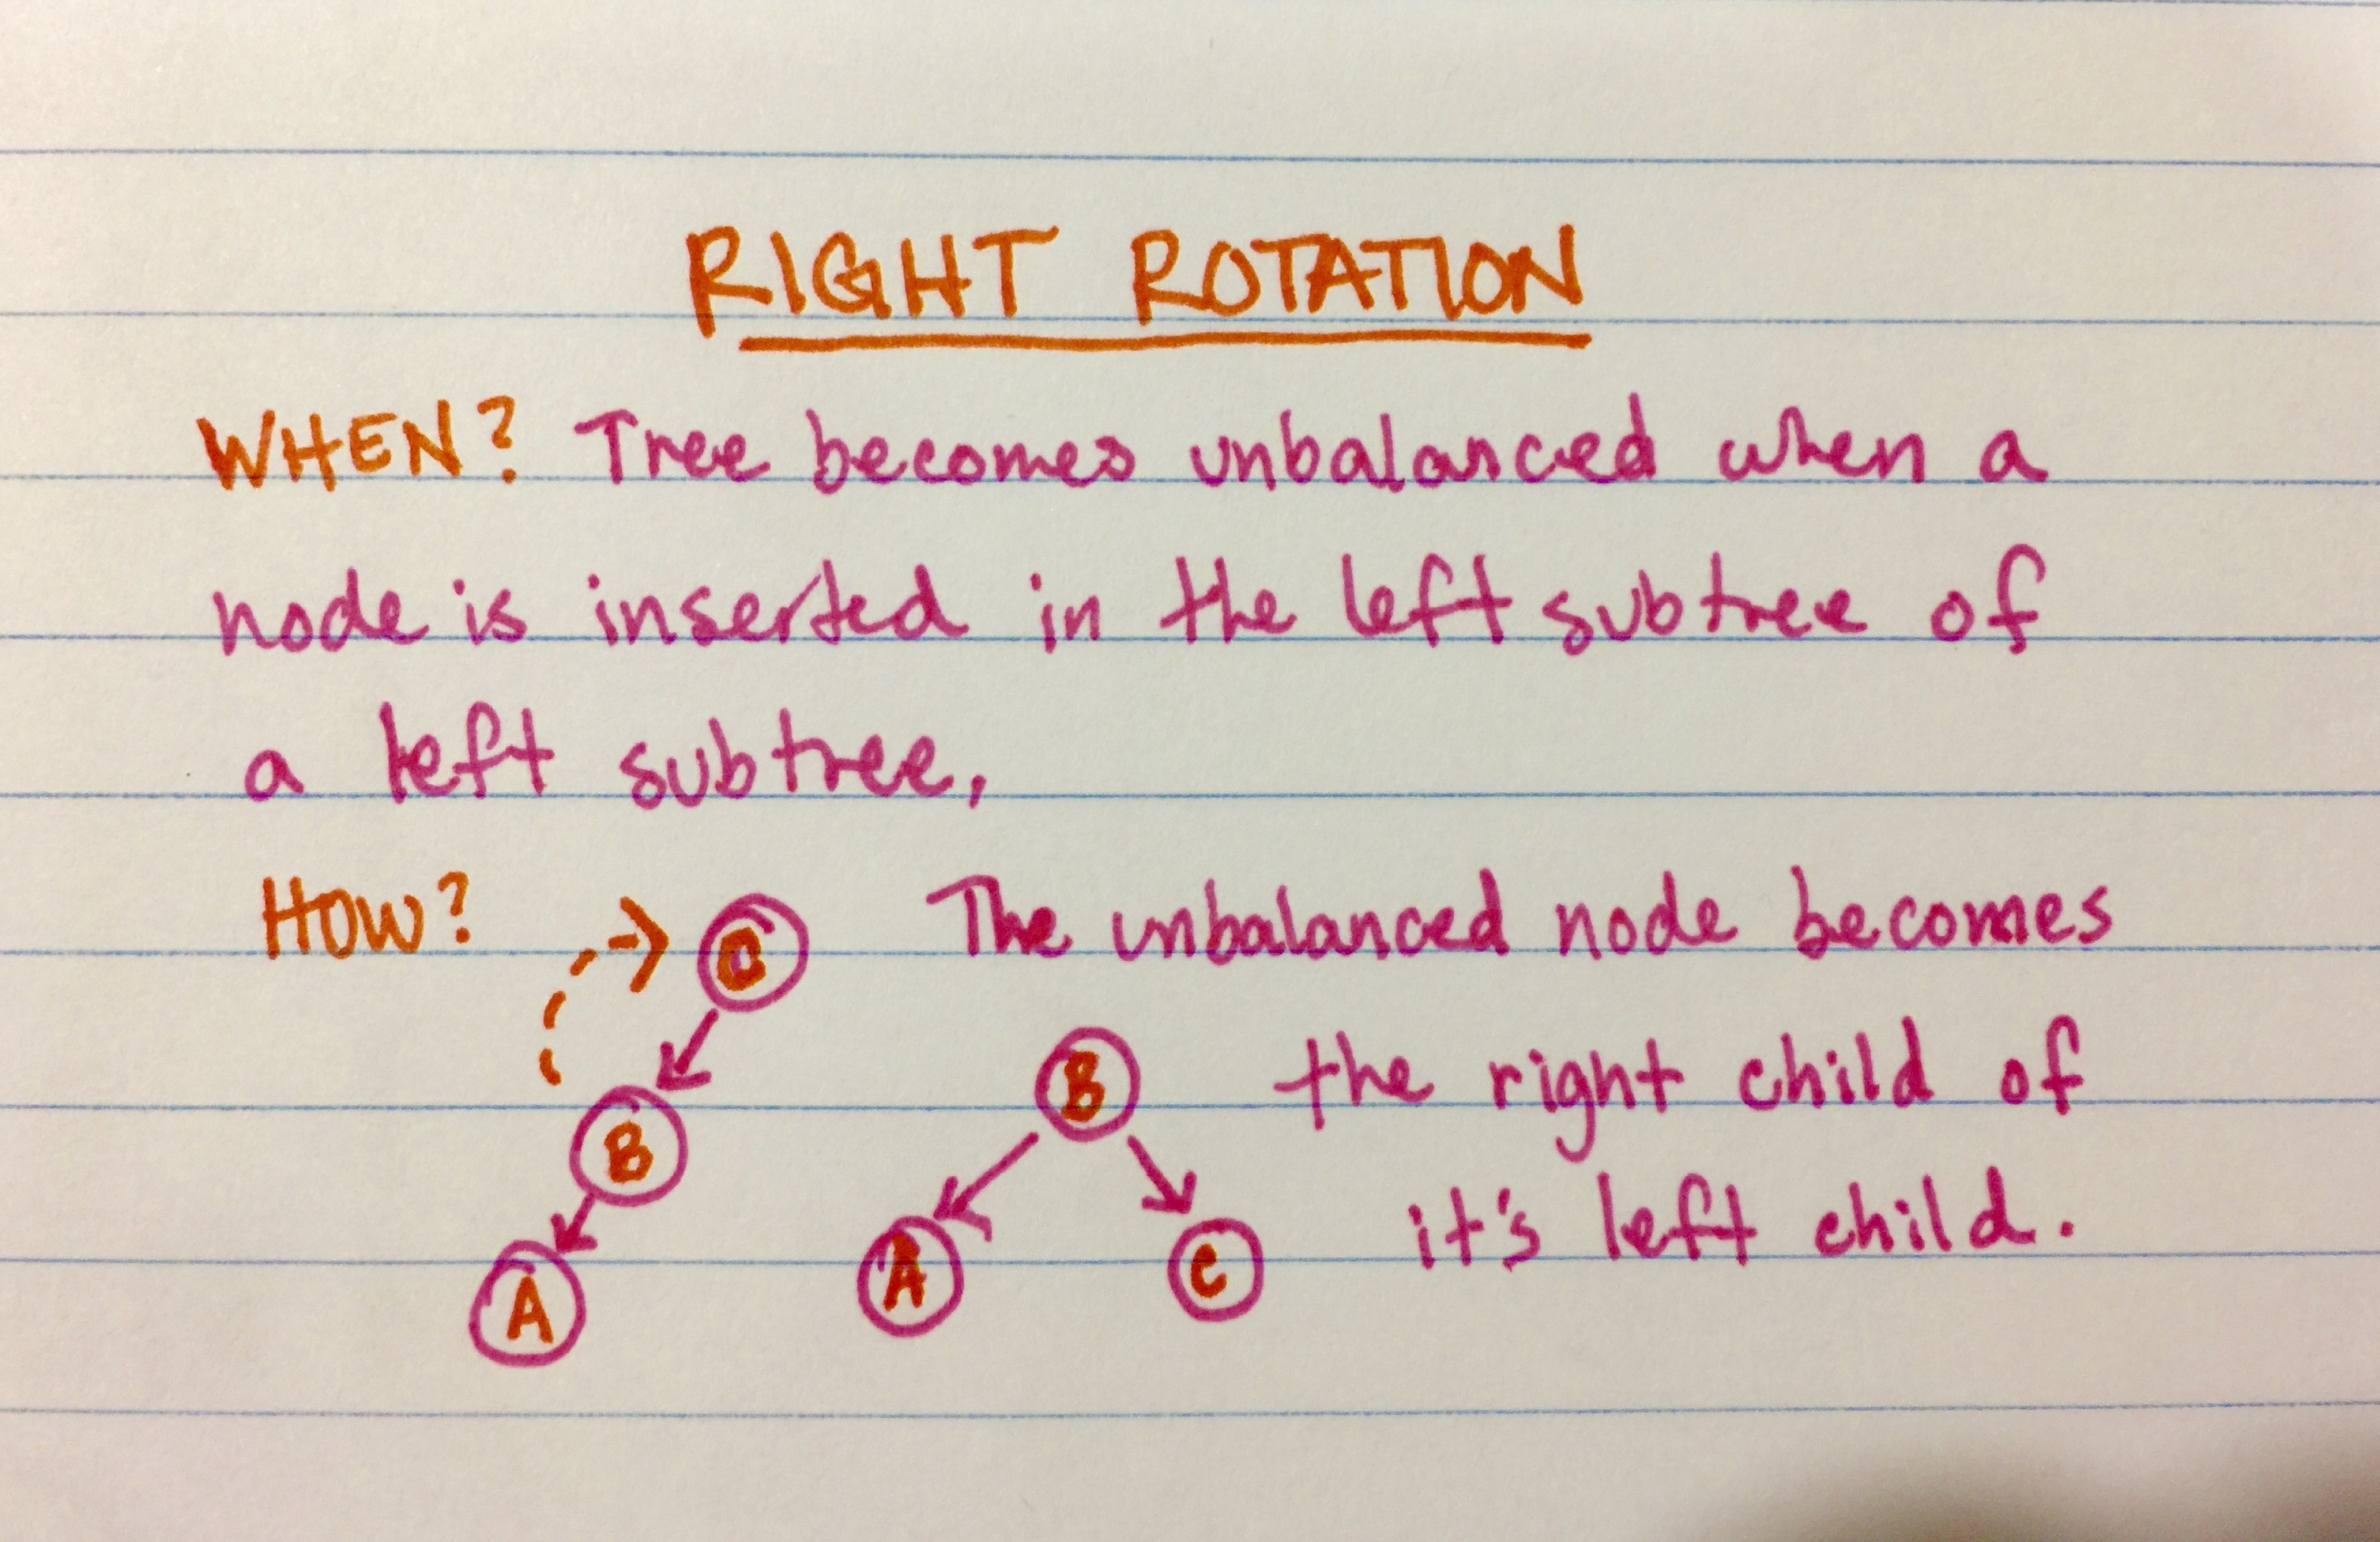 RIGHT ROTATION
WHEN? Tree becomes unbalanced when a
node is inserted in the left subtree of
a left subtree.
HOW? The unbalanced node becomes
B
B the right child of
A
A C it's left child.